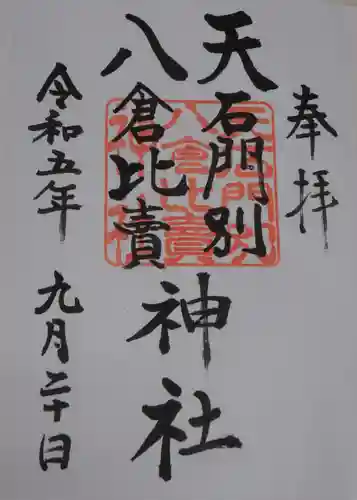 奉拝
天石門別
八倉比賣
神社
令和五年 九月二十日